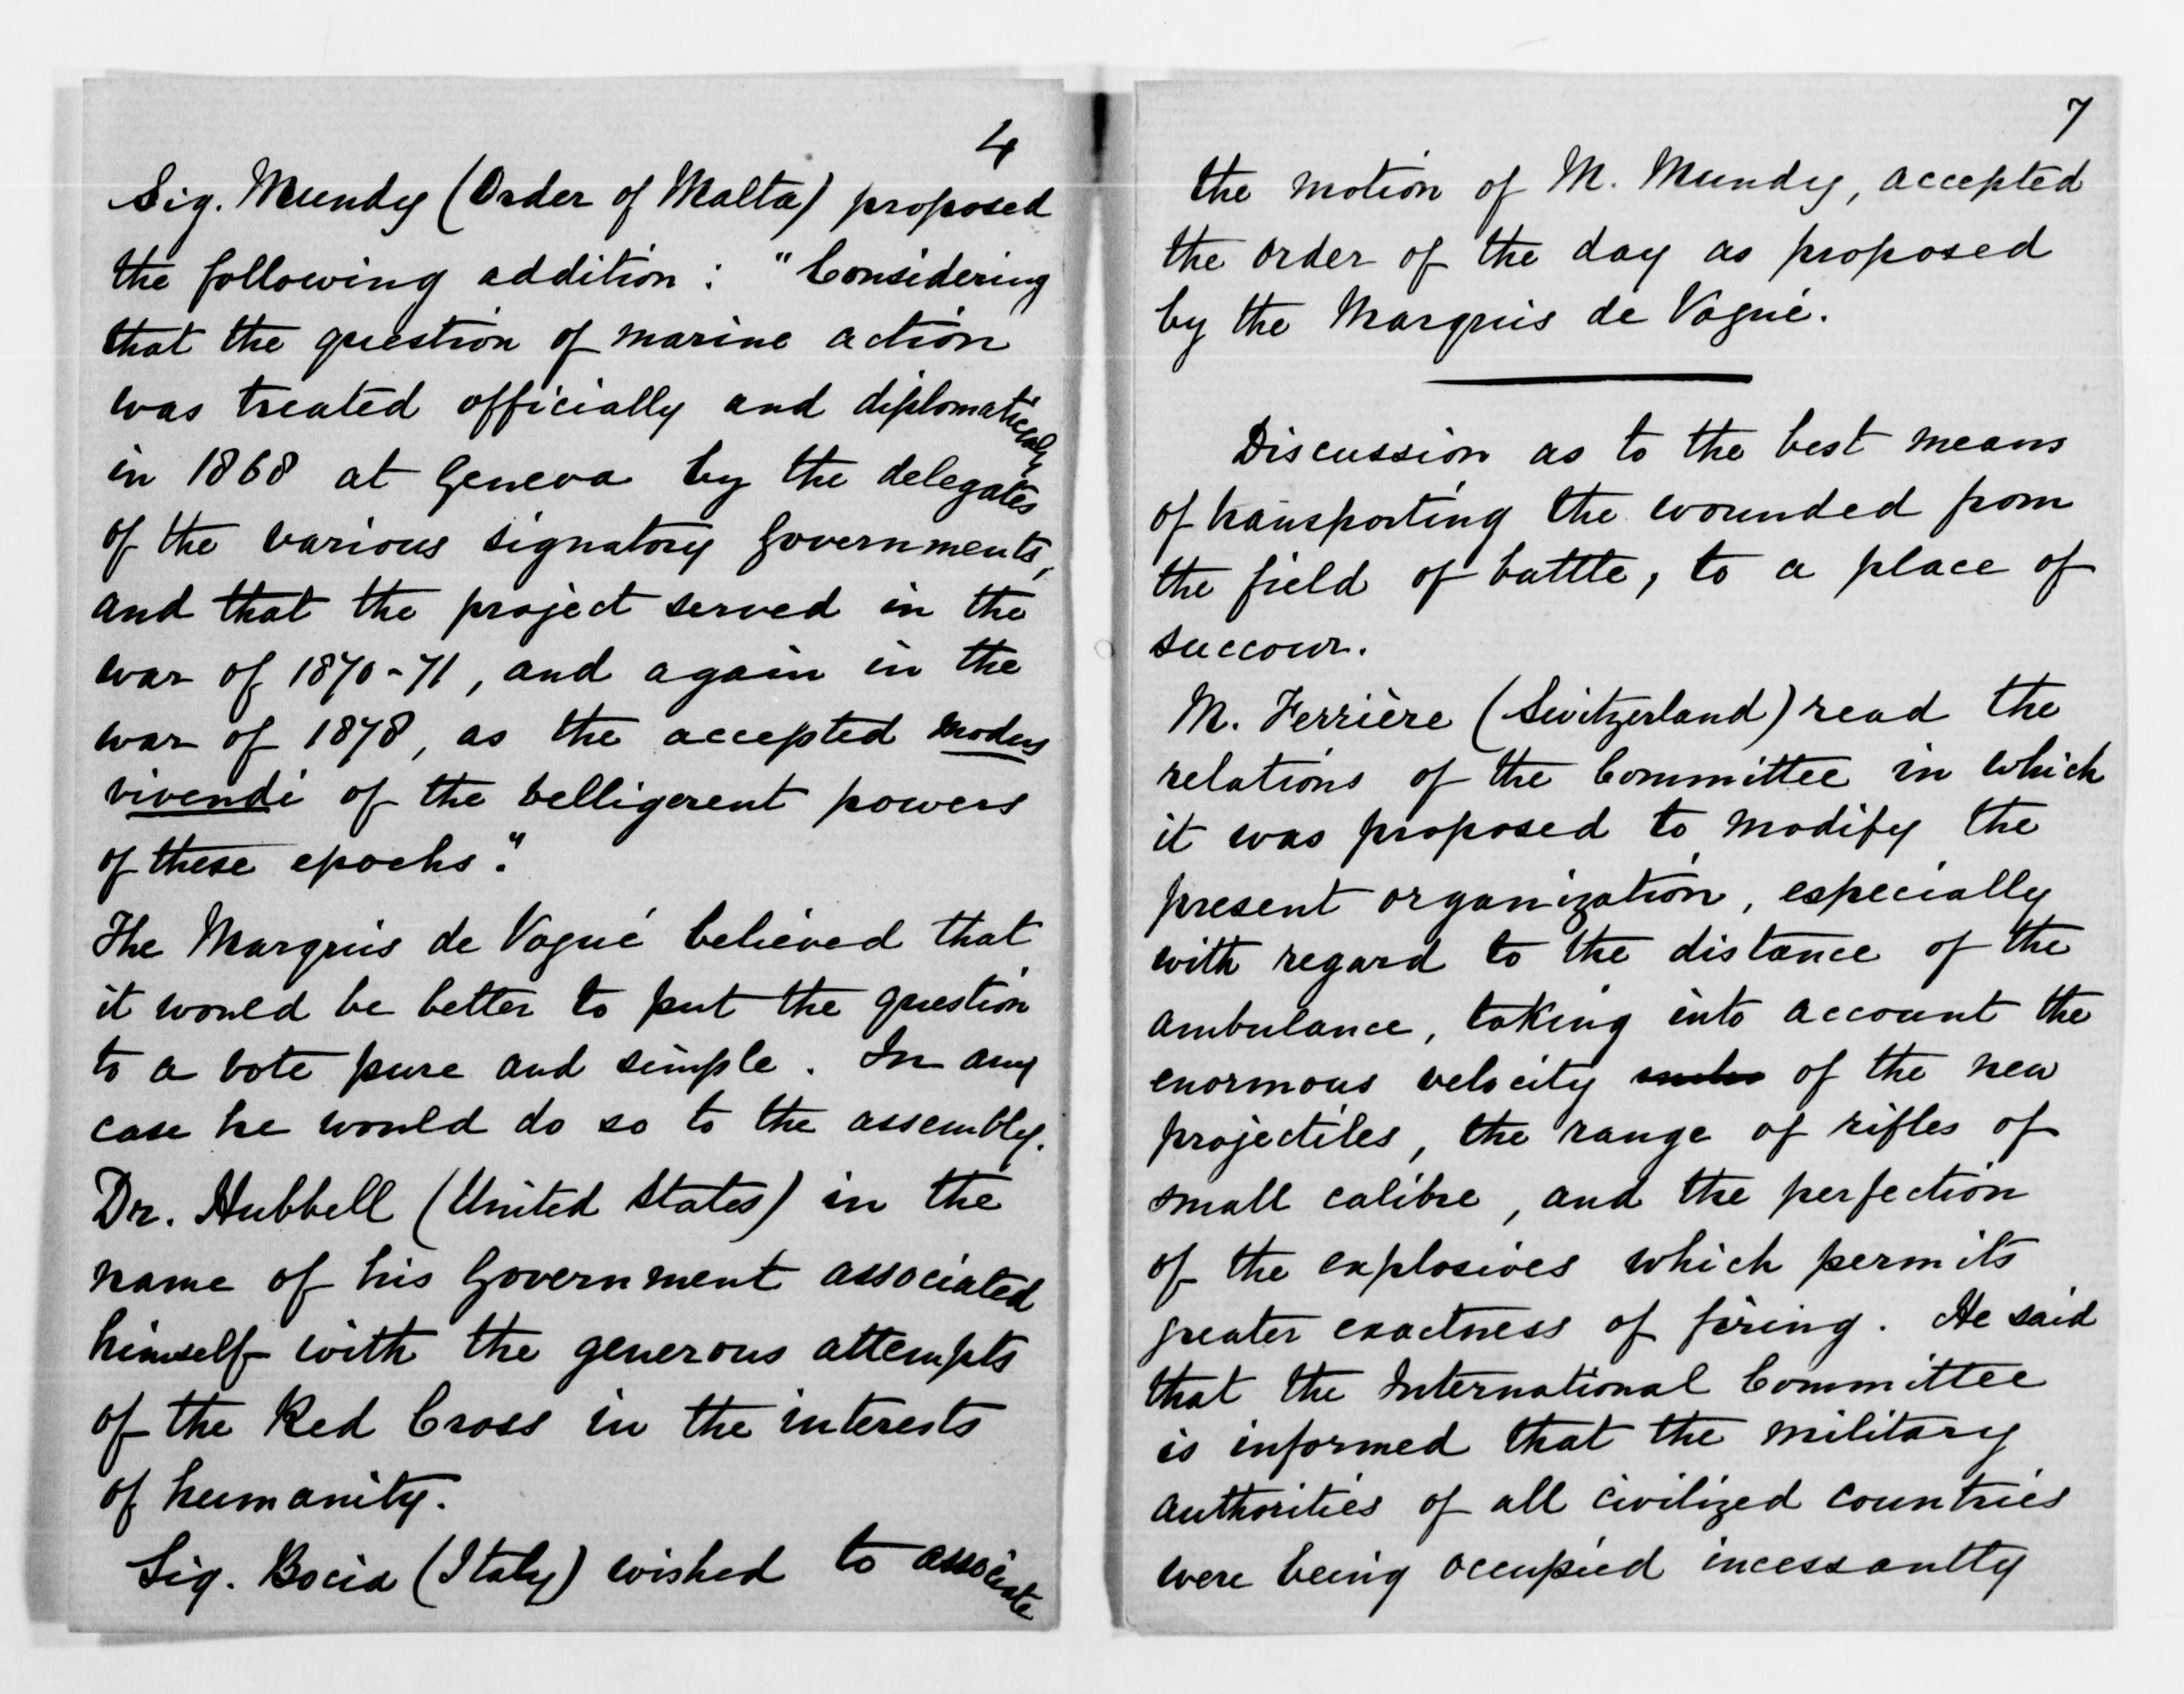 4
Sig. Mundy (Order of Malta) proposed
the following addition : "Considering
that the question of marine action
was treated officially and diplomatically
in 1868 at Geneva by the delegates
of the various signatory Governments,
and that the project served in the
war of 1870-71, and again in the
war of 1878, as the accepted modus
vivendi of the belligerent powers
of these epochs".
The Marquis de Vogué believed that
it would be better to put the question
to a vote pure and simple. In any
case he would do so to the assembly.
Dr. Hubbell (United States) in the
name of his Government associated
himself with the generous attempts
of the Red Cross in the interests
of humanity.
Sig. Bocia (Italy) wished to associate
7
the motion of M. Mundy, accepted
the order of the day as proposed
by the Marquis de Vogué.
Discussion as to the best means
of transporting the wounded from
the field of battle, to a place of
succour.
M. Ferrière (Switzerland) read the
relations of the Committee in which
it was proposed to modify the
present organization, especially
with regard to the distance of the
ambulance, taking into account the
enormous velocity of the new
projectiles, the range of rifles of
small calibre, and the perfection
of the explosives which permits
greater exactness of firing. He said
that the International Committee
is informed that the military
authorities of all civilized countries
were being occupied incessantly